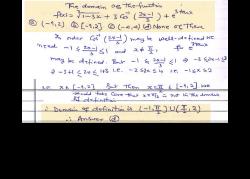 The domain of the function
f(x) = √(2-3x) + 3 Cos⁻¹((2x-1)/3) + e^(3tanx)
(a) (-1,2) (b) [-1,2] (c) (-∞,∞) (d) None of these
In order Cos⁻¹((2x-1)/3) may be well-defined we
need -1 ≤ (2x-1)/3 ≤ 1 and x ≠ π/2, for e^(3tanx)
may be defined. But -1 ≤ (2x-1)/3 ≤ 1 ⇒ -3 ≤ 2x-1 ≤ 3
⇒ -3+1 ≤ 2x ≤ 1+3 i.e. -2 ≤ 2x ≤ 4 i.e. -1 ≤ x ≤ 2
x ∈ [-1,2] But then x = π/2 ∈ [-1,2] we
should take care that x = π/2 is not in the domain
of definition
∴ Domain of definition is (-1, π/2) ∪ (π/2, 2)
∴ Answer (d)